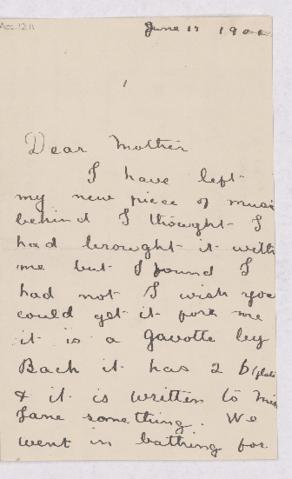 Acc.1211
June 17 1900
Dear Mother
I have left
my new piece of music
behind I thought I
had brought it with
me but I found I
had not I wish you
could get it for me
it is a Gavotte by
Bach it has 2 b(flats
& it is written to Miss
Jane something. We
went in bathing for